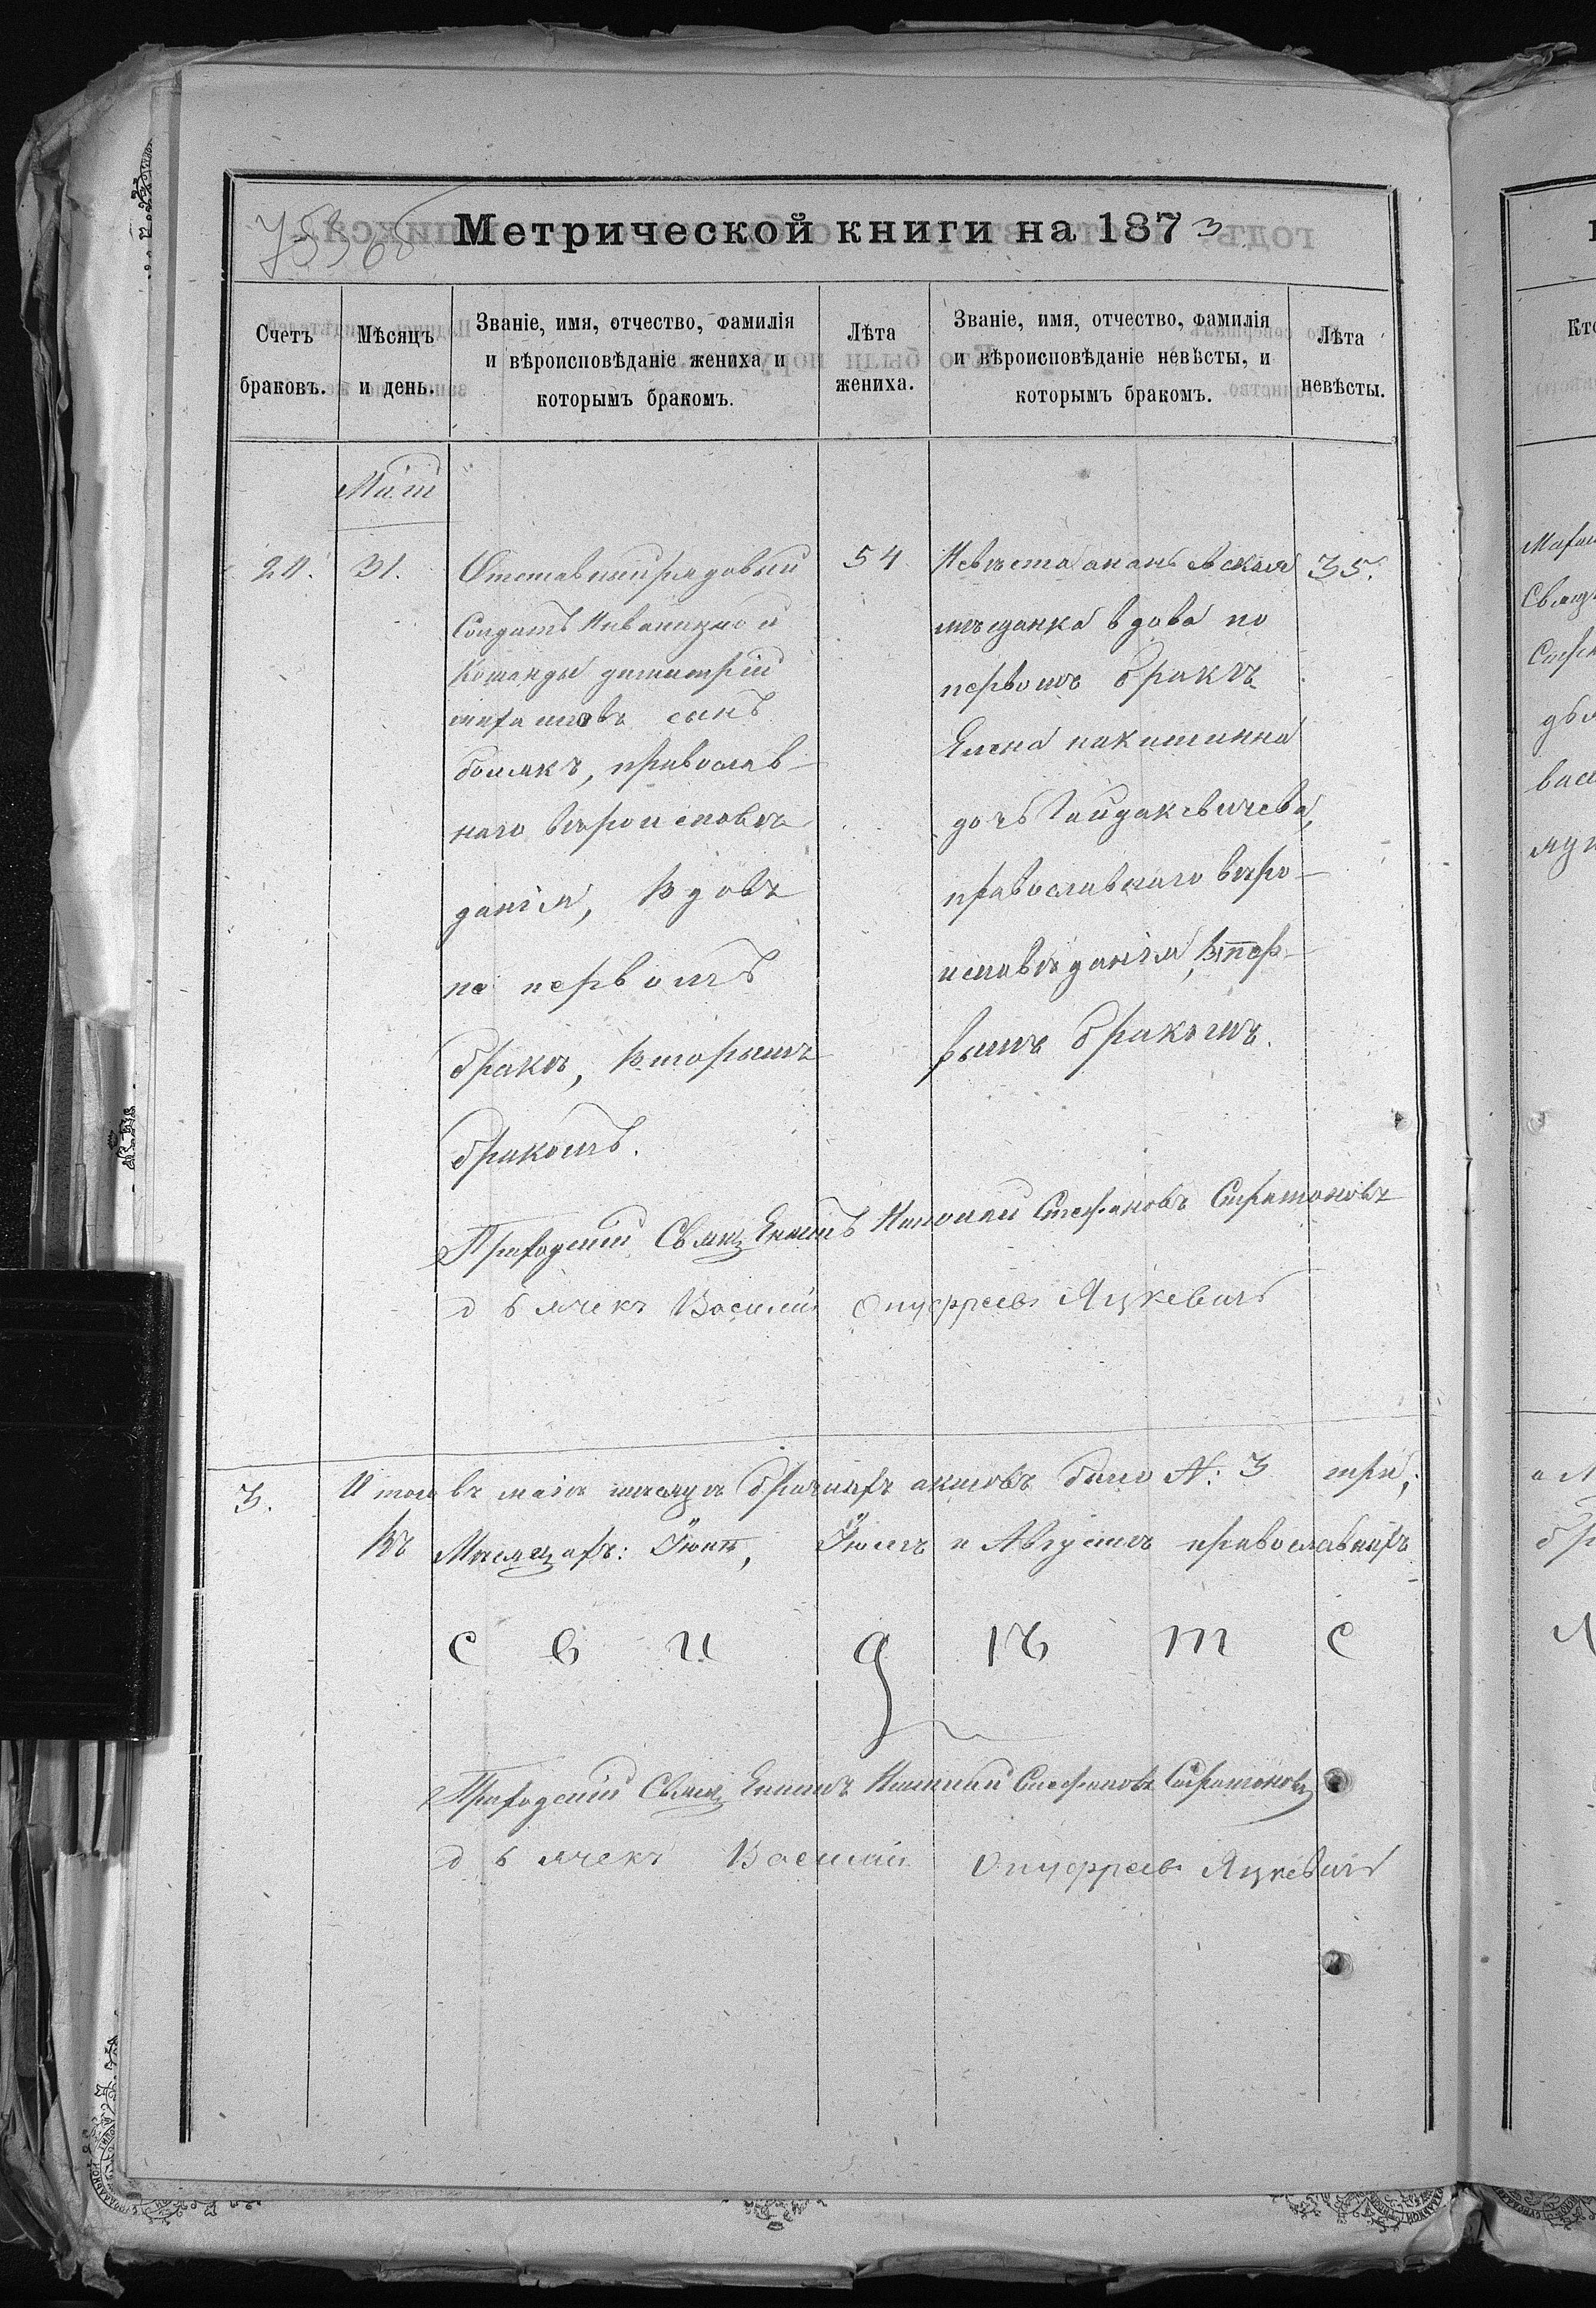 Метрической книги на 1873
Счетъ браковъ.
Мѣсяцъ и день.
Званіе, имя, отчество, фамилія
и вѣроисповѣданіе жениха и
которымъ бракомъ.
Лѣта жениха.
Званіе, имя, отчество, фамилія
и вѣроисповѣданіе невѣсты, и
которымъ бракомъ.
Лѣта невѣсты.
Маій
31.
Отставный рядовый
Солдатъ
Команды димитрій
сынъ
православ-
наго вѣроисповѣ-
данія, вдовъ
по первомъ
бракѣ, вторымъ
бракомъ.
54
Невѣста ананьевская
мѣщанка вдова по
первомъ бракѣ
Елена
дочь Гайдакевичева,
православнаго вѣро-
исповѣданія, втор-
ымъ бракомъ.
35.
Приходскій Священникъ Николай Стефановъ
дьячекъ Василій Онуфреевъ Яцкевичъ
3. Итого въ маіи мѣсяцѣ брачныхъ актовъ было N: 3 три;
Въ Мѣсяцахъ: Іюнѣ, Іюлѣ и Августѣ православныхъ
Приходскій Священникъ Николай Стефановъ
дьячекъ Василій Онуфреевъ Яцкевичъ